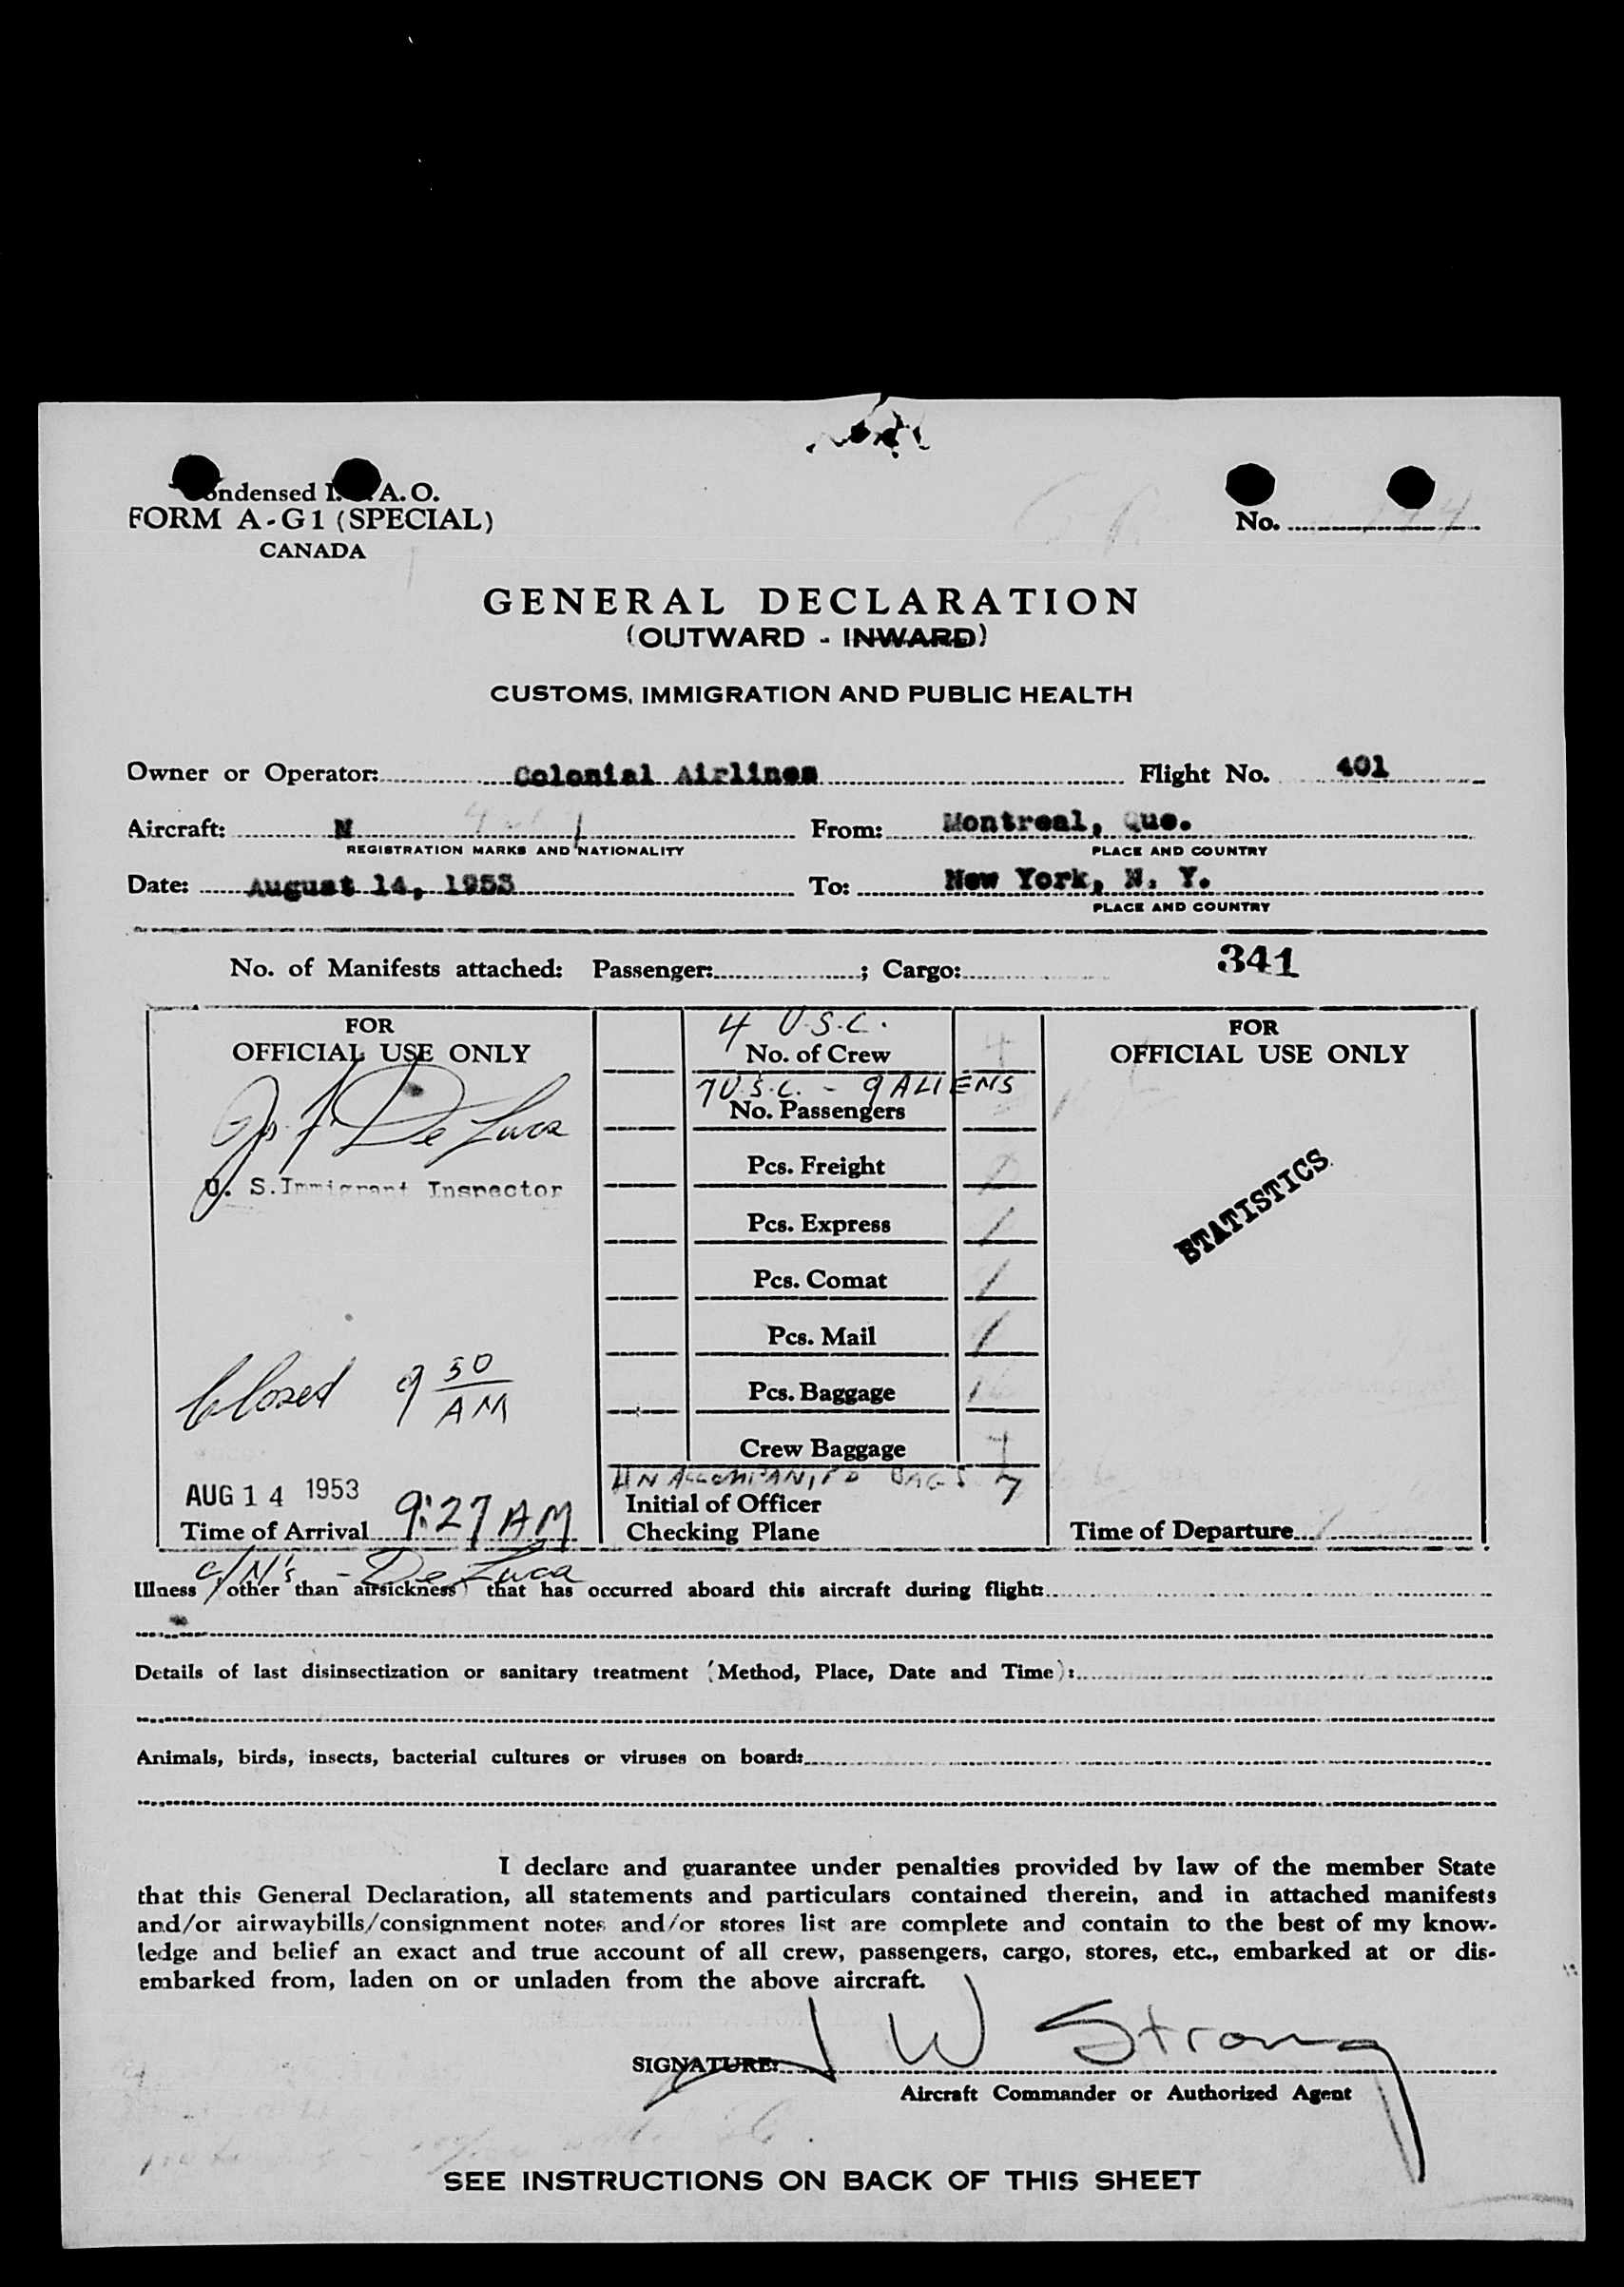 ondensed I. A. O.
FORM A-G1 (SPECIAL)
CANADA
No.
GENERAL DECLARATION
(OUTWARD - INWARD)
CUSTOMS, IMMIGRATION AND PUBLIC HEALTH
Owner or Operator: Colonial Airlines Flight No. 401
Aircraft: N From: Montreal, Que.
REGISTRATION MARKS AND NATIONALITY PLACE AND COUNTRY
Date: August 14, 1953 To: New York, N. Y.
PLACE AND COUNTRY
No. of Manifests attached: Passenger: ; Cargo: 341
FOR OFFICIAL USE ONLY
Jos. F. De Luca
U. S. Immigrant Inspector
Closed 9 50 AM
AUG 14 1953
Time of Arrival 9:27 AM
4 U.S.C.
No. of Crew 4
7 U.S.C. - 9 ALIENS
No. Passengers
Pcs. Freight
Pcs. Express /
Pcs. Comat /
Pcs. Mail /
Pcs. Baggage 16
Crew Baggage 4
UNACCOMPANIED BAGS 7
Initial of Officer
Checking Plane
FOR
OFFICIAL USE ONLY
STATISTICS
Time of Departure
c/N's - De Luca
Illness (other than airsickness) that has occurred aboard this aircraft during flight:
Details of last disinsectization or sanitary treatment (Method, Place, Date and Time):
Animals, birds, insects, bacterial cultures or viruses on board:
I declare and guarantee under penalties provided by law of the member State
that this General Declaration, all statements and particulars contained therein, and in attached manifests
and/or airwaybills/consignment notes and/or stores list are complete and contain to the best of my know-
ledge and belief an exact and true account of all crew, passengers, cargo, stores, etc., embarked at or dis-
embarked from, laden on or unladen from the above aircraft.
SIGNATURE: J W Strong
Aircraft Commander or Authorized Agent
SEE INSTRUCTIONS ON BACK OF THIS SHEET